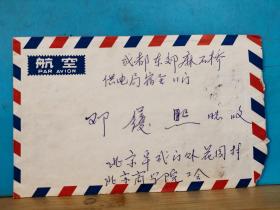 航空
PAR AVION
成都东郊麻石桥
供电局宿舍11门
邓 煕 收
北京阜成门外花园村
北京商学院工会